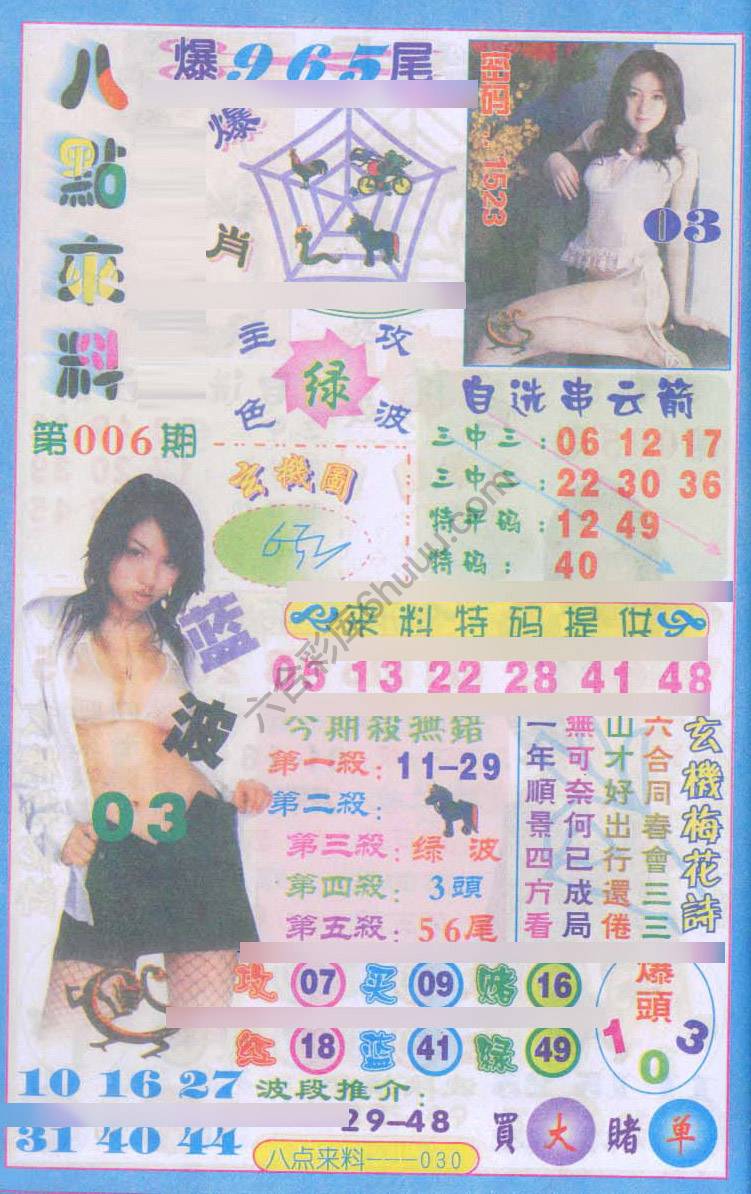 八點來料
爆965尾
爆肖
密.:1523
03
主攻
绿
色波
第006期
玄機圖
自选串云箭
三中三:06 12 17
三中二:22 30 36
特平码:12 49
特码:40
来料特码提供
05 13 22 28 41 48
蓝波
03
今期殺無錯
第一殺:11-29
第二殺:
第三殺:绿波
第四殺:3頭
第五殺:56尾
玄機梅花詩
六合同春會三三
山才好出行還倦
無可奈何已成局
一年順景四方看
攻 07 买 09 赌 16
红 18 蓝 41 绿 49
爆頭
1 0 3
10 16 27
31 40 44
波段推介:
29-48
買大賭单
八点来料---030
六合彩图6huuu.com